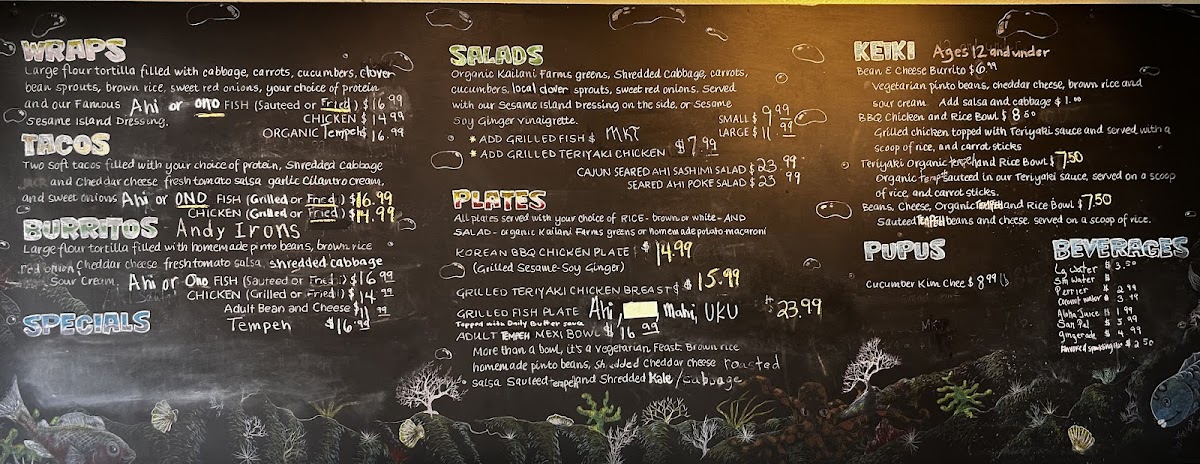 WRAPS
Large flour tortilla filled with cabbage, carrots, cucumbers, clover
bean sprouts, brown rice, sweet red onions, your choice of protein
and our Famous Ahi or ono FISH (Sauteed or Fried) $16.99
Sesame Island Dressing. CHICKEN $14.99
ORGANIC Tempeh $16.99
TACOS
Two soft tacos filled with your choice of protein, Shredded Cabbage
and Cheddar cheese fresh tomato salsa garlic cilantro cream,
and sweet onions Ahi or ONO FISH (Grilled or Fried) $16.99
CHICKEN (Grilled or Fried) $14.99
BURRITOS Andy Irons
Large flour tortilla filled with homemade pinto beans, brown rice
red onion, Cheddar cheese fresh tomato salsa shredded cabbage
Sour Cream. Ahi or Ono FISH (Sauteed or Fried) $16.99
CHICKEN (Grilled or Fried) $14.99
Adult Bean and Cheese $11.99
Tempeh $16.99
SPECIALS
SALADS
Organic Kailani Farms greens, Shredded Cabbage, carrots,
cucumbers, local clover sprouts, sweet red onions. Served
with our Sesame Island Dressing on the side, or Sesame
Soy Ginger Vinaigrette. SMALL $9.99
LARGE $11.99
* ADD GRILLED FISH $ MKT
* ADD GRILLED TERIYAKI CHICKEN $7.99
CAJUN SEARED AHI SASHIMI SALAD $23.99
SEARED AHI POKE SALAD $23.99
PLATES
All plates served with your choice of RICE - brown or white - AND
SALAD - organic Kailani Farms greens or homemade potato macaroni
KOREAN BBQ CHICKEN PLATE $14.99
(Grilled Sesame-Soy Ginger)
GRILLED TERIYAKI CHICKEN BREAST $15.99
GRILLED FISH PLATE Ahi, Mahi, UKU $23.99
Topped with Daily Butter sauce
ADULT TEMPEH MEXI BOWL $16.99
More than a bowl, it's a vegetarian Feast. Brown rice
homemade pinto beans, shredded Cheddar cheese roasted
salsa Sauteed tempeh and Shredded Kale/Cabbage
KEIKI Ages 12 and under
Bean & Cheese Burrito $6.99
Vegetarian pinto beans, cheddar cheese, brown rice and
sour cream Add salsa and cabbage $1.00
BBQ Chicken and Rice Bowl $8.50
Grilled chicken topped with Teriyaki sauce and served with a
scoop of rice, and carrot sticks
Teriyaki Organic tempeh and Rice Bowl $7.50
Organic Temp Sauteed in our Teriyaki sauce, served on a scoop
of rice, and carrot sticks.
Beans, Cheese, Organic TEMPEH and Rice Bowl $7.50
Sauteed TEMPEH beans and cheese served on a scoop of rice.
PUPUS
Cucumber Kim Chee $8.99
BEVERAGES
Lg water $3.50
Sm water $
Perrier $2.99
Coconut water $3.99
Aloha Juice $1.99
San Pel $3.99
gingerade $4.99
$2.50